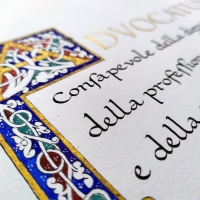 DVOCATU
Consapevole della
della profession
e della